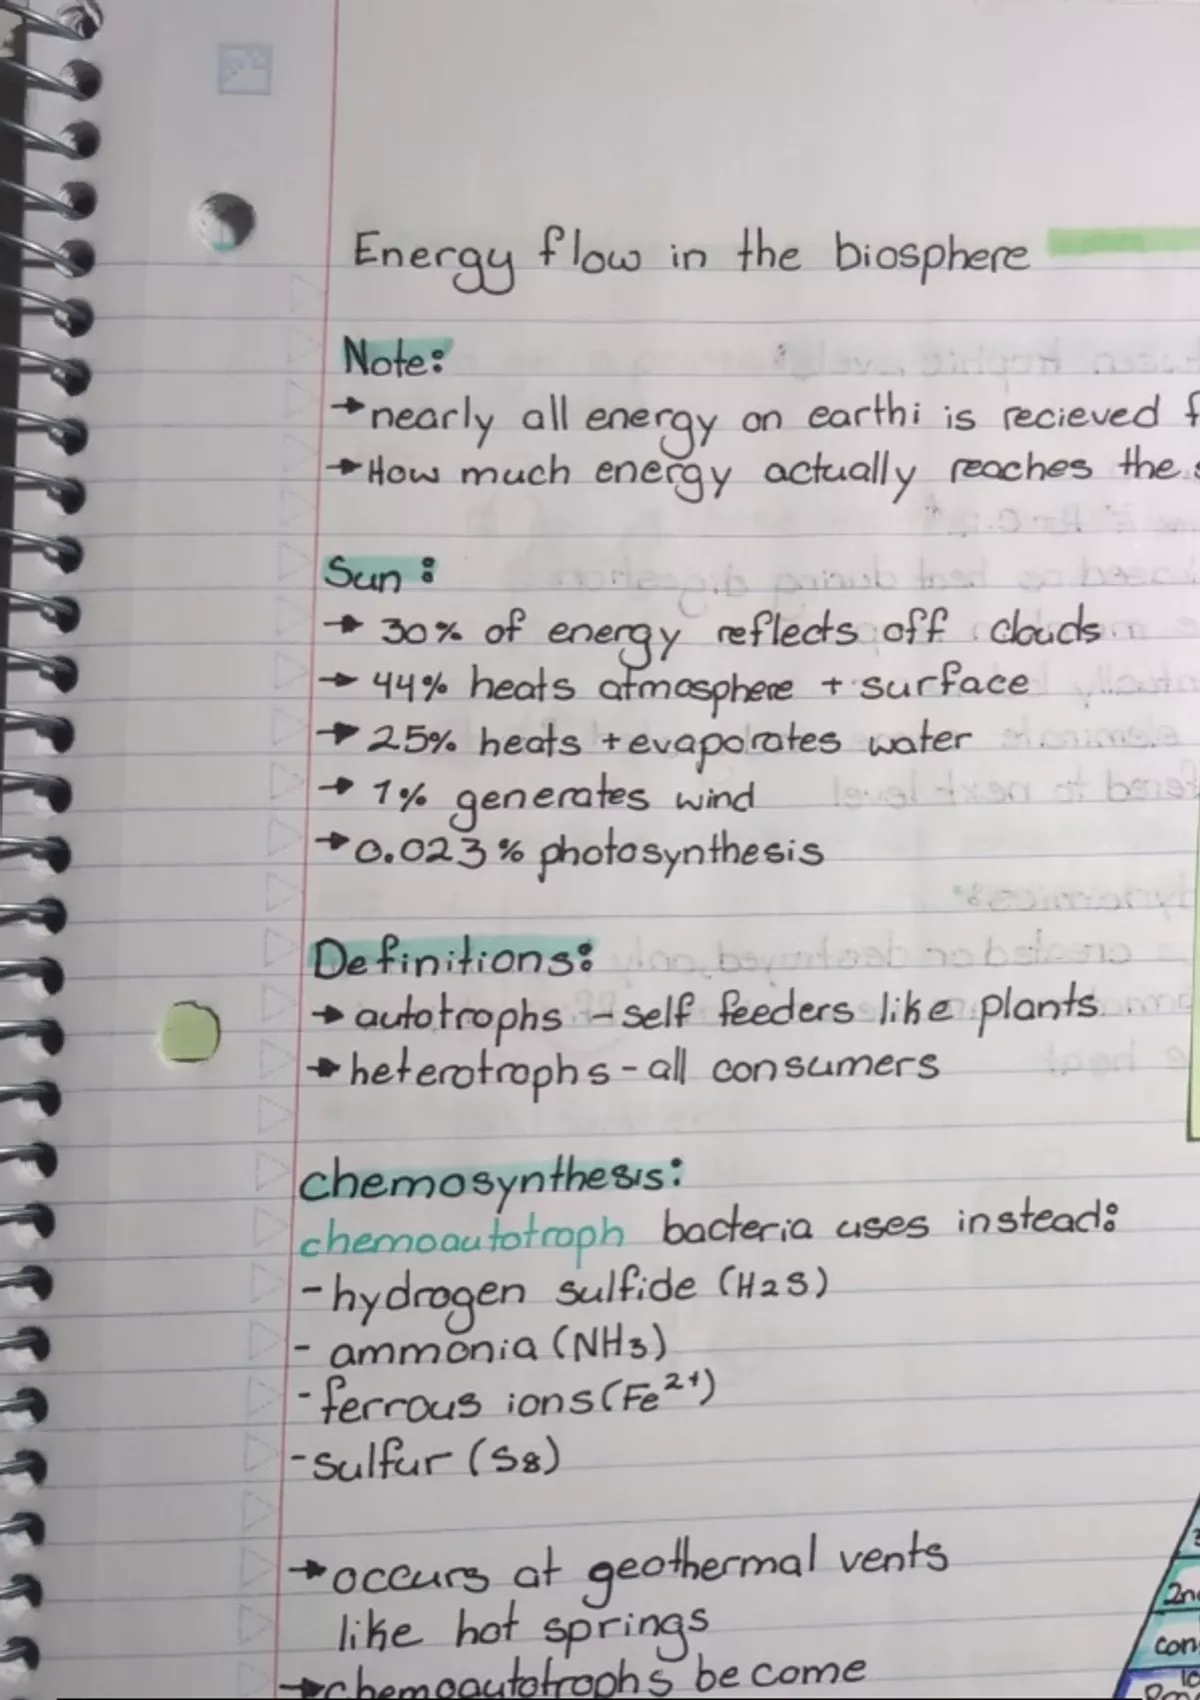 Energy flow in the biosphere
Note:
→nearly all energy on earthi is recieved f
→How much energy actually reaches the s
Sun:
→ 30% of energy reflects off clouds
→ 44% heats atmosphere + surface
→ 25% heats + evaporates water
→ 1% generates wind
→ 0.023% photosynthesis
Definitions:
→ autotrophs - self feeders like plants
→ heterotrophs - all consumers
chemosynthesis:
chemoautotroph bacteria uses instead:
- hydrogen sulfide (H2S)
- ammonia (NH3)
- ferrous ions (Fe²⁺)
- sulfur (S8)
→ occurs at geothermal vents
like hot springs
2nd
→ chemoautotrophs become
con